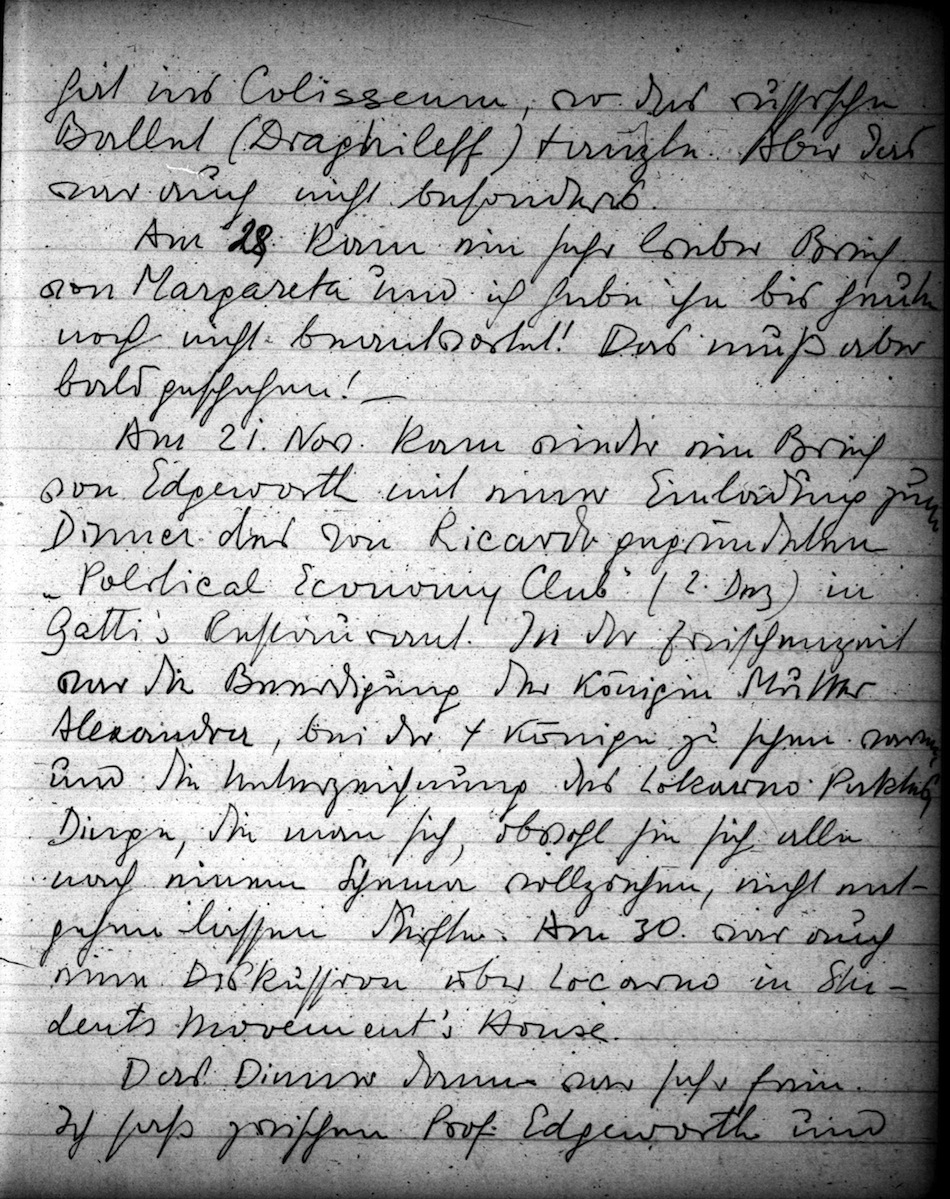 hat ins Colisseum, wo das russische
Ballet (Draghileff) tanzte. Aber das
war auch nicht besonders.
Am 28. kam ein sehr lieber Brief
von Margareta und ich habe ihn bis heute
noch nicht beantwortet! Das muß aber
bald geschehen! —
Am 21. Nov. kam wieder ein Brief
von Edgeworth mit einer Einladung zum
Dinner des von Ricardo gegründeten
„Political Economy Club" (2. Dez) in
Gatti's Restaurant. In der Zwischenzeit
war die Beerdigung der Königin Mutter
Alexandra, bei der 4 Könige zu sehen waren
und die Unterzeichnung des Lokarno Paktes,
Dinge, die man sich, obwohl sie sich alle
nach einem Schema vollziehen, nicht ent-
gehen lassen dürfte. Am 30. war auch
eine Diskussion über Locarno in Stu-
dents Movement's House.
Das Dinner dann war sehr fein.
Ich saß zwischen Prof. Edgeworth und